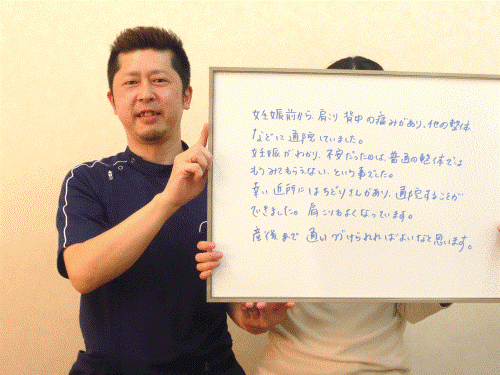 妊娠前から、肩こり 背中の痛みがあり、他の整体
などに通院していました。
妊娠がわかり、不安だったのは、普通の整体では
もうみてもらえない、という事でした。
幸い近所にはちどりさんがあり、通院することが
できました。肩こりもよくなっています。
産後まで 通いつづけられればよいなと思います。